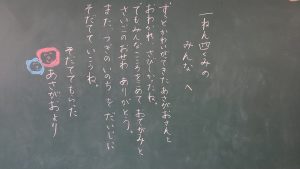 一ねん四くみの
みんなへ
ずっとかわいがてきたあさがおさんと
おわかれ、さびしかったね。
でもみんなこころをこめておてがみと
さいごのおせわありがとう。
またつぎのいのちをだいじに
そだてていこうね。
そだててもらった
あさがおより